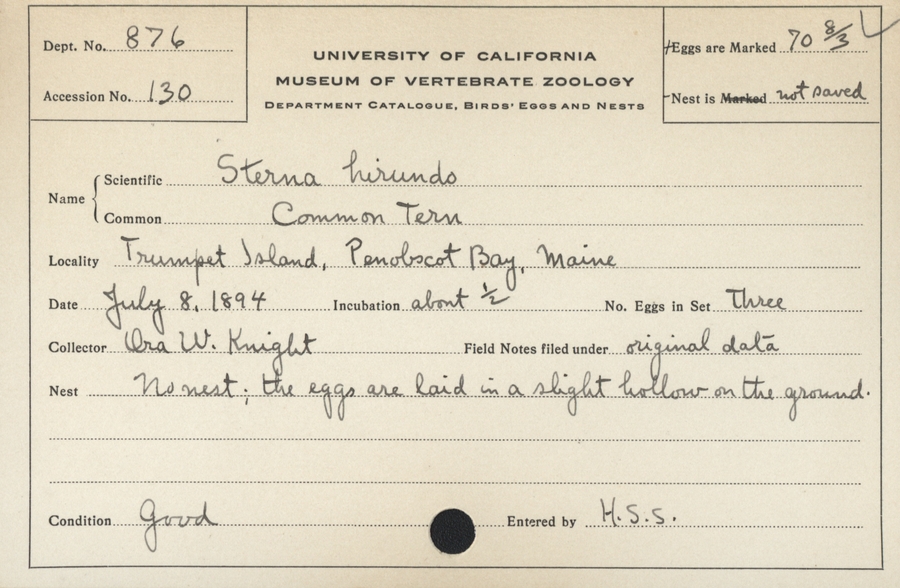 Dept. No. 876
Accession No. 130
UNIVERSITY OF CALIFORNIA
MUSEUM OF VERTEBRATE ZOOLOGY
DEPARTMENT CATALOGUE, BIRDS' EGGS AND NESTS
Eggs are Marked 70 8/3
Nest is Marked not saved
Name
Scientific Sterna hirundo
Common Common Tern
Locality Trumpet Island, Penobscot Bay, Maine
Date July 8, 1894 Incubation about 1/2 No. Eggs in Set Three
Collector Ora W. Knight Field Notes filed under original data
Nest No nest; the eggs are laid in a slight hollow on the ground.
Condition Good Entered by H.S.S.